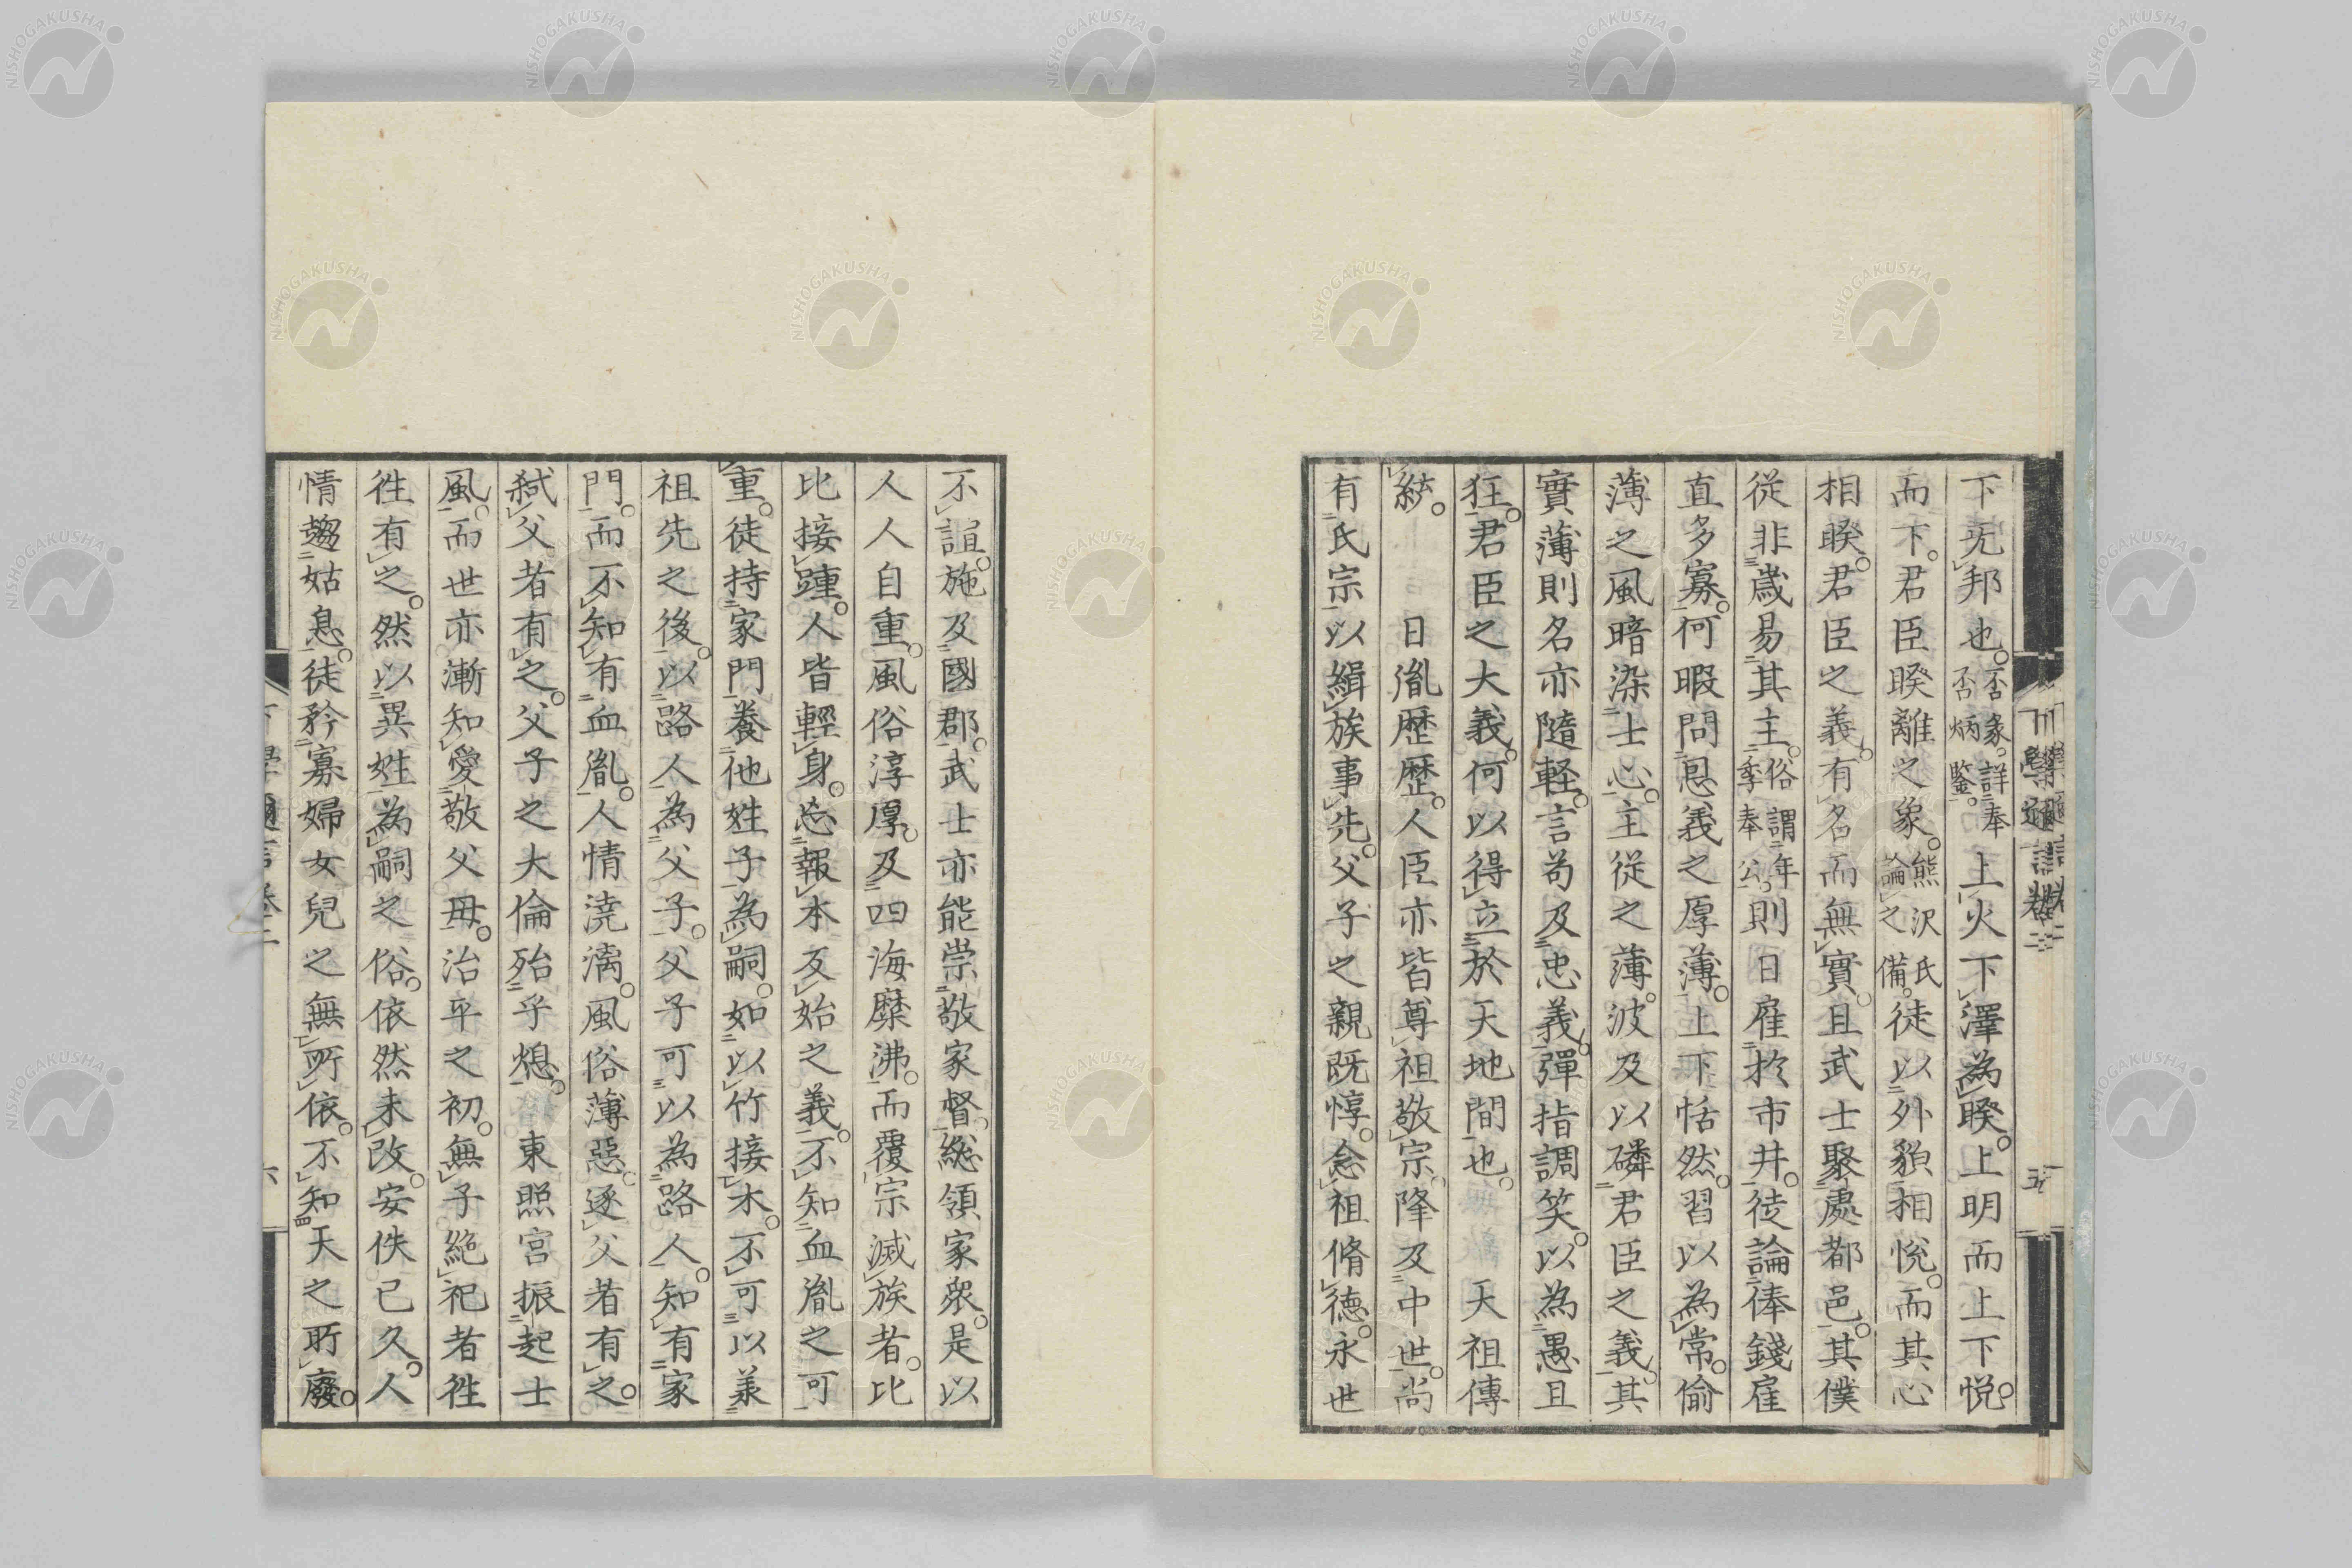 下无邦也。否象。詳奉否炳鑒。上火下澤為睽。上明而上下悦。
而下。君臣睽離之象。熊沢氏論之備。徒以外貌相悅。而其心
相睽。君臣之義。有名而無實。且武士聚處都邑。其僕
從非歲易其主。俗謂年季奉公。則日雇於市井。徒論俸錢雇
直多寡。何暇問恩義之厚薄。上下恬然。習以為常。偷
薄之風暗染士心。主從之薄。波及以磷君臣之義。其
實薄則名亦隨軽。言苟及忠義。彈指調笑。以為愚且
狂。君臣之大義。何以得立於天地間也。　天祖傳
統。　日胤歴歴。人臣亦皆尊祖敬宗。降及中世。尚
有氏宗以緝族事先。父子之親既惇。念祖脩德。永世
不諠。施及國郡。武士亦能崇敬家督。総領家衆。是以
人人自重。風俗淳厚。及四海糜沸。而覆宗滅族者。比
比接踵。人皆輕身。忘報本反始之義。不知血胤之可
重。徒持家門養他姓子為嗣。如以竹接木。不可以兼
祖先之後。以路人為父子。父子可以為路人。知有家
門。而不知有血胤。人情澆漓。風俗薄惡。逐父者有之。
弑父者有之。父子之大倫殆乎熄。　東照宮振起士
風。而世亦漸知愛敬父母。治平之初。無子絶祀者徃
徃有之。然以異姓為嗣之俗。依然未改。安佚已久。人
情趨姑息。徒矜寡婦女兒之無所依。不知天之所廢。
下學邇言卷二
五
六
NISHOGAKUSHA